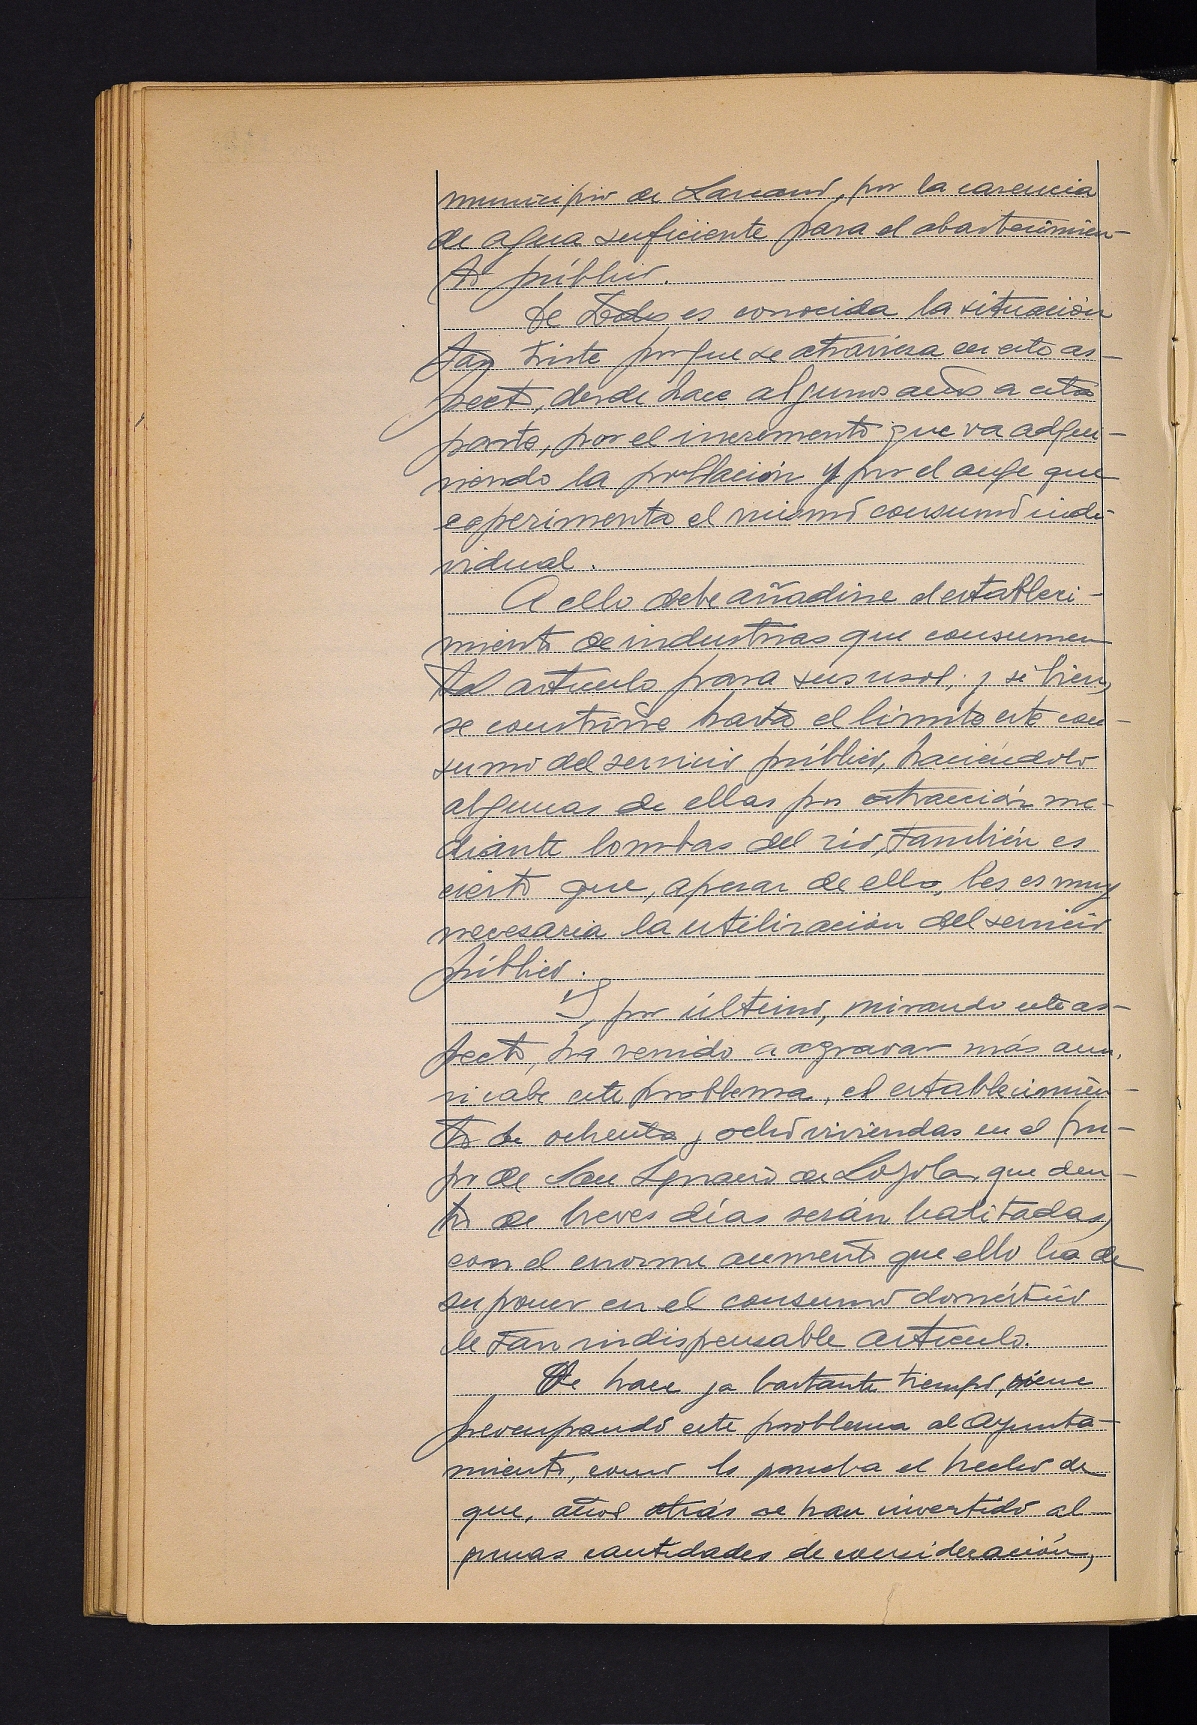 municipio de Larcano, por la carencia
de agua suficiente para el abastecimien-
to público.
De todos es conocida la situación
tan triste porque se atraviesa en este as-
pecto, desde hace algunos años a esta
parte, por el incremento que va adqui-
riendo la población y por el auge que
experimenta el mismo consumo indi-
vidual.
A ello debe añadirse el estableci-
miento de industrias que consumen
tal artículo para sus usos, y si bien,
se constriñe hasta el límite este con-
sumo del servicio público, haciéndolo
algunas de ellas por extracción me-
diante bombas del río, también es
cierto que, apesar de ello, les es muy
necesaria la utilización del servicio
público.
Y, por último, mirando este as-
pecto, ha venido a agravar más aun,
si cabe este problema, el establecimien-
to de ochenta y ocho viviendas en el gru-
po de San Ignacio de Loyola, que den-
tro de breves días serán habitadas,
con el enorme aumento que ello ha de
suponer en el consumo doméstico
de tan indispensable artículo.
De hace ya bastante tiempo, viene
preocupando este problema al Ayunta-
miento, como lo prueba el hecho de
que, años atrás se han invertido al-
gunas cantidades de consideración,